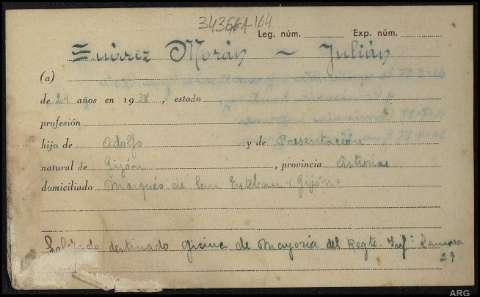 343664164
Leg. núm. Exp. núm.
Suárez Morán - Julián
(a)
de 21 años en 1938, estado
profesión
hijo de Adolfo y de Presentación
natural de Gijón, provincia Asturias
domiciliado Marqués de San Esteban - Gijón
Soldado destinado oficina de Mayoría del Regto. Infª Zamora
29
ARG